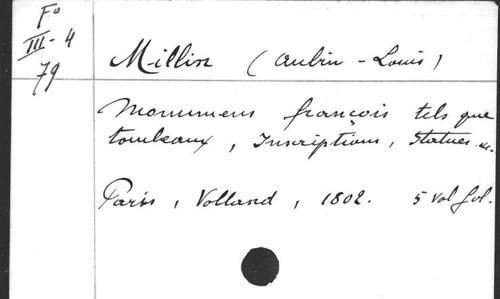 Fº
III-4
79
Millin (Aubin-Louis)
Monumens françois tels que
tombeaux, Inscriptions, Statues &c.
Paris, Volland, 1802. 5 vol fol.